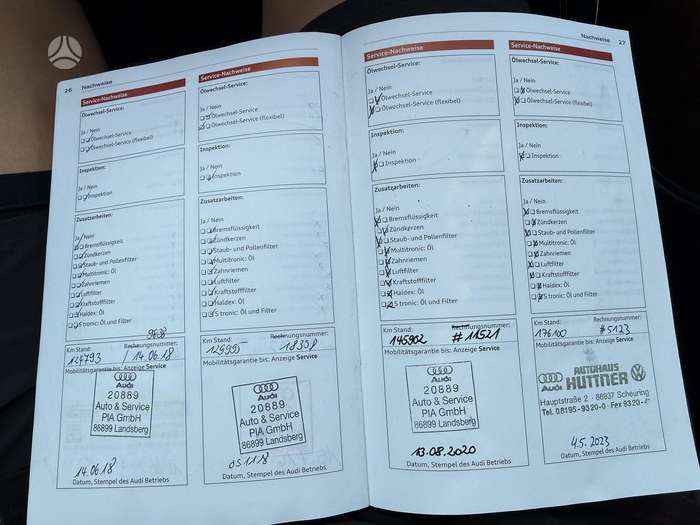 26 Nachweise
Service-Nachweise
Ölwechsel-Service:
Ja / Nein
Ölwechsel-Service
Ölwechsel-Service (flexibel)
Inspektion:
Ja / Nein
Inspektion
Zusatzarbeiten:
Ja / Nein
Bremsflüssigkeit
Zündkerzen
Staub- und Pollenfilter
Multitronic: Öl
Zahnriemen
Luftfilter
Kraftstofffilter
Haldex: Öl
S tronic: Öl und Filter
Km Stand:
124793 / 14.06.18
Mobilitätsgarantie bis: Anzeige Service
Audi
20889
Auto & Service
PIA GmbH
86899 Landsberg
14.06.18
Datum, Stempel des Audi Betriebs
Service-Nachweise
Ölwechsel-Service:
Ja / Nein
Ölwechsel-Service
Ölwechsel-Service (flexibel)
Inspektion:
Ja / Nein
Inspektion
Zusatzarbeiten:
Ja / Nein
Bremsflüssigkeit
Zündkerzen
Staub- und Pollenfilter
Multitronic: Öl
Zahnriemen
Luftfilter
Kraftstofffilter
Haldex: Öl
S tronic: Öl und Filter
Km Stand: Rechnungsnummer:
18338
Mobilitätsgarantie bis: Anzeige Service
Audi
20889
Auto & Service
PIA GmbH
86899 Landsberg
Datum, Stempel des Audi Betriebs
Service-Nachweise
Ölwechsel-Service:
Ja / Nein
Ölwechsel-Service
Ölwechsel-Service (flexibel)
Inspektion:
Ja / Nein
Inspektion
Zusatzarbeiten:
Ja / Nein
Bremsflüssigkeit
Zündkerzen
Staub- und Pollenfilter
Multitronic: Öl
Zahnriemen
Luftfilter
Kraftstofffilter
Haldex: Öl
S tronic: Öl und Filter
Km Stand: Rechnungsnummer:
145902 # 11521
Mobilitätsgarantie bis: Anzeige Service
Audi
20889
Auto & Service
PIA GmbH
86899 Landsberg
13.08.2020
Datum, Stempel des Audi Betriebs
Nachweise 27
Service-Nachweise
Ölwechsel-Service:
Ja / Nein
Ölwechsel-Service
Ölwechsel-Service (flexibel)
Inspektion:
Ja / Nein
Inspektion
Zusatzarbeiten:
Ja / Nein
Bremsflüssigkeit
Zündkerzen
Staub- und Pollenfilter
Multitronic: Öl
Zahnriemen
Luftfilter
Kraftstofffilter
Haldex: Öl
S tronic: Öl und Filter
Km Stand: Rechnungsnummer:
176100 #5123
Mobilitätsgarantie bis: Anzeige Service
Audi
AUTOHAUS
HUTTNER
Hauptstraße 2 - 86937 Scheuring
Tel. 08195-9320-0
4.5.2023
Datum, Stempel des Audi Betriebs